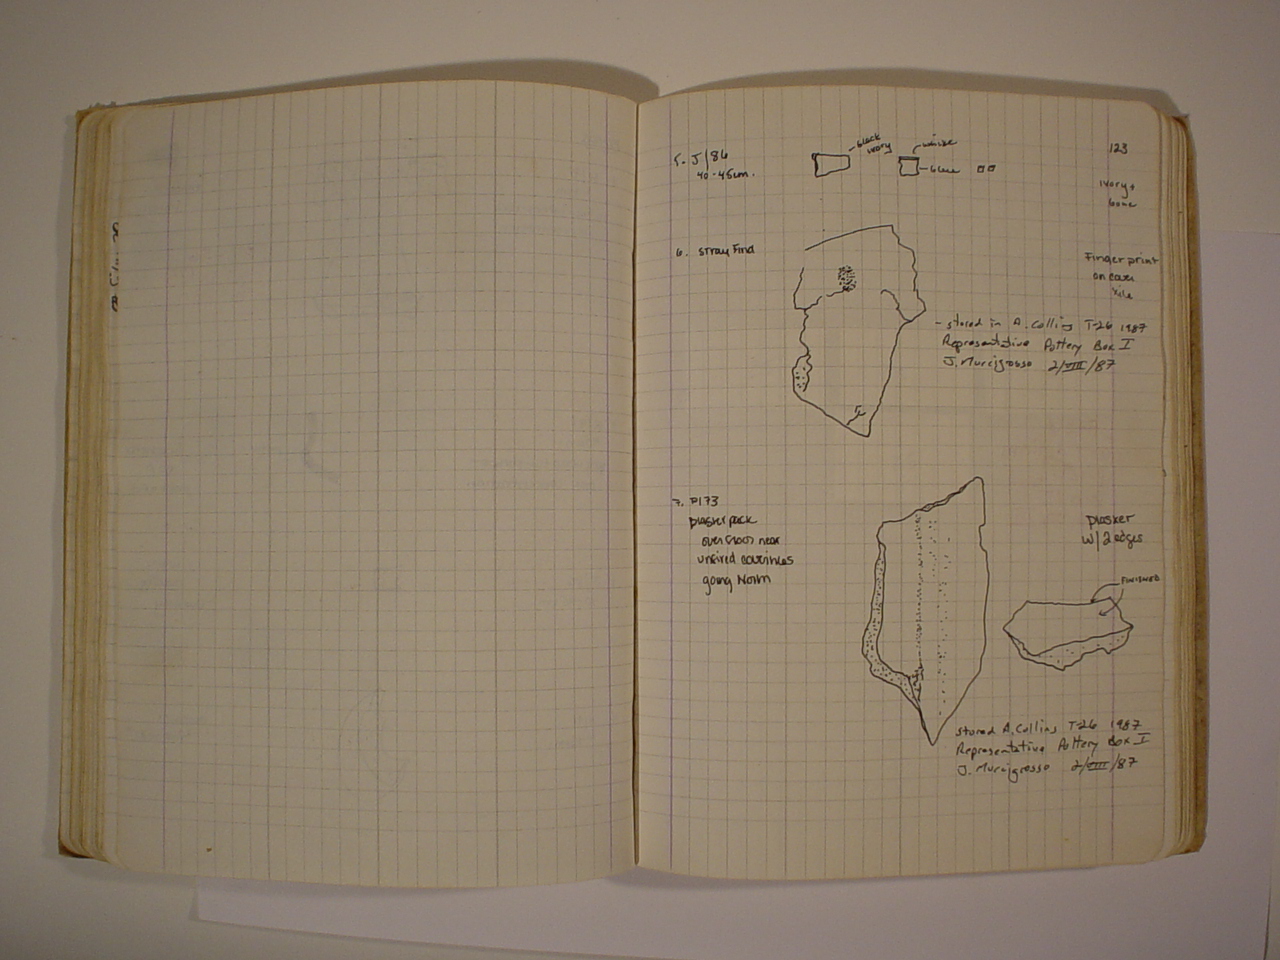 123
5. J/86
40-45cm.
black
ivory
white
blue
ivory +
bone
6. stray Find
Finger print
on cover
tile
- stored in A. Collins T-26 1987
Representative Pottery Box I
J. Murcigrosso 2/VIII/87
7. P173
plaster pack
near
unfired covertiles
going North
plaster
w/2 edges
FINISHED
stored A. Collins T-26 1987
Representative Pottery Box I
J. Murcigrosso 2/VIII/87